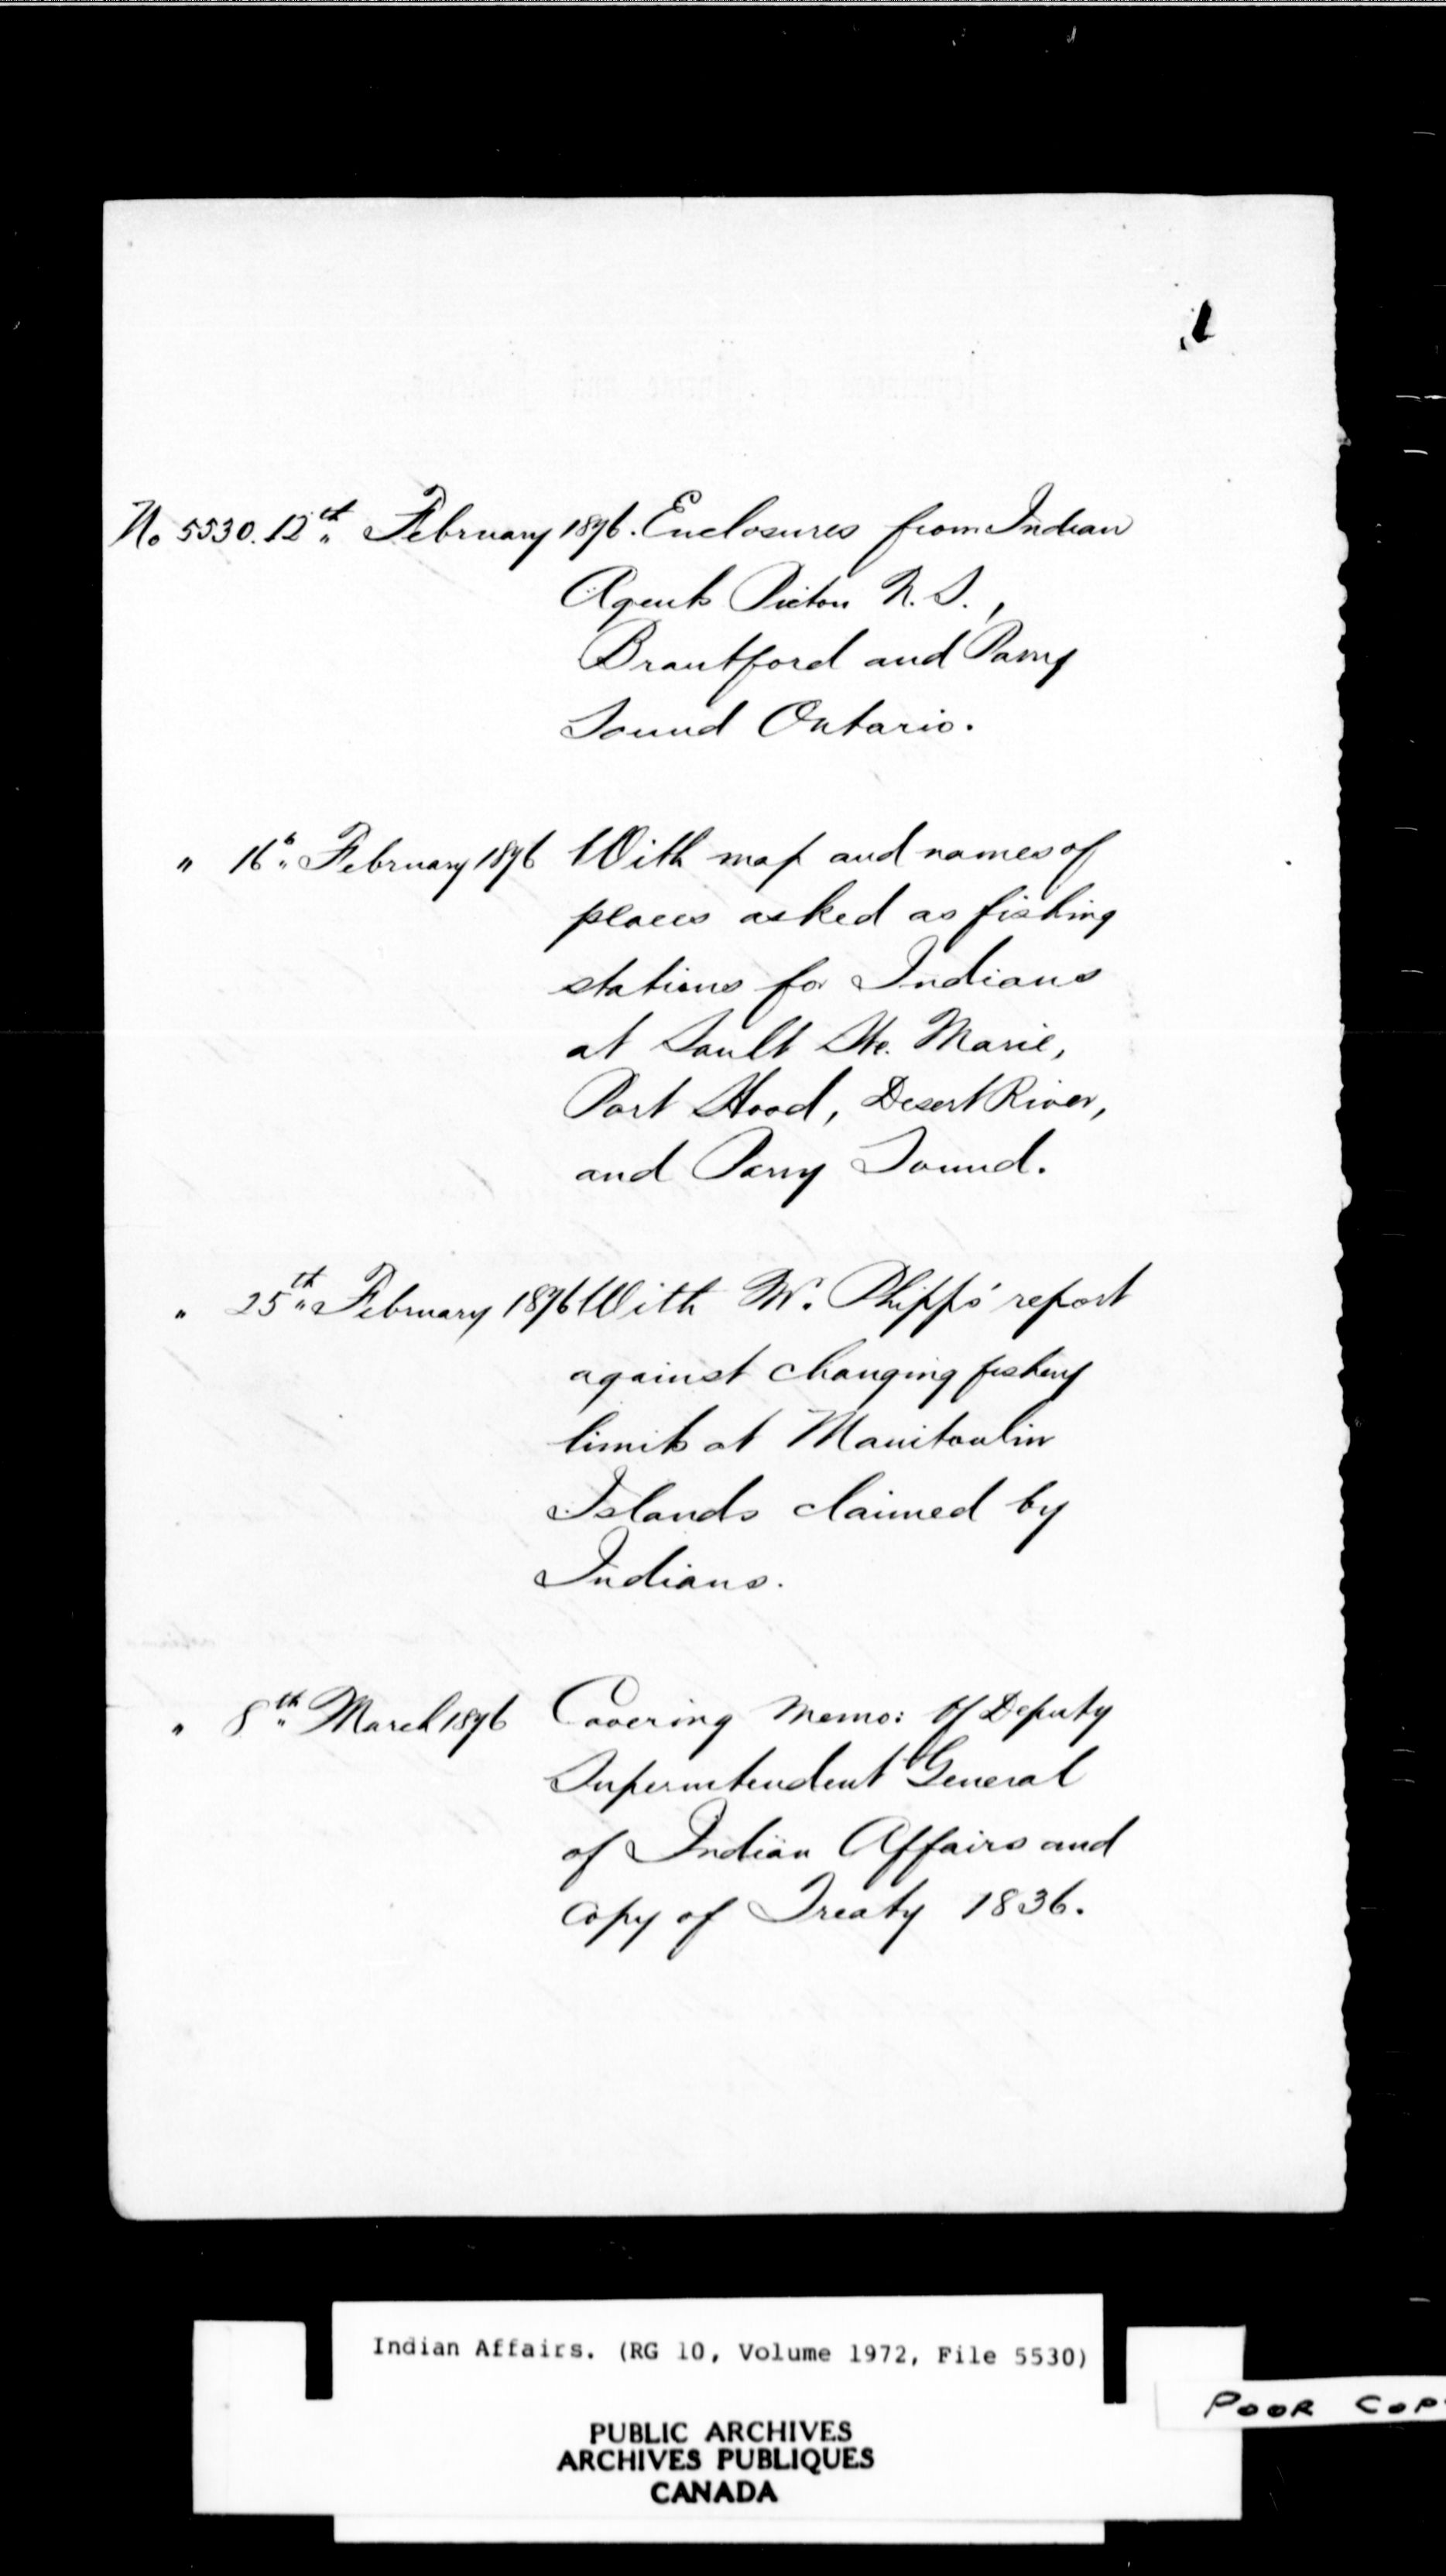 1
No 5530. 12th February 1876. Enclosures from Indian
Agents Pictou N. S.,
Brantford and Parry
Sound Ontario.
" 16th February 1876 With map and names of
places asked as fishing
stations for Indians
at Sault Ste. Marie,
Port Hood, Desert River,
and Parry Sound.
" 25th February 1876 With Mr. Phipps' report
against changing fishery
limits at Manitoulin
Islands claimed by
Indians.
" 8th March 1876 Covering Memo: of Deputy
Superintendent General
of Indian Affairs and
copy of Treaty 1836.
Indian Affairs. (RG 10, Volume 1972, File 5530)
PUBLIC ARCHIVES
ARCHIVES PUBLIQUES
CANADA
POOR COP